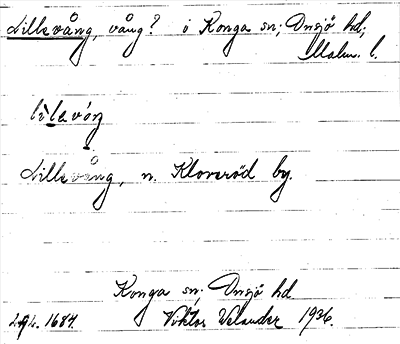 Lillevång, vång? i Konga sn; Onsjö hd;
Malm. l.
lìlevóŋ
Lillevång, n. Klovsröd by.
Konga sn; Onsjö hd.
1684. Viktor Velander 1936.